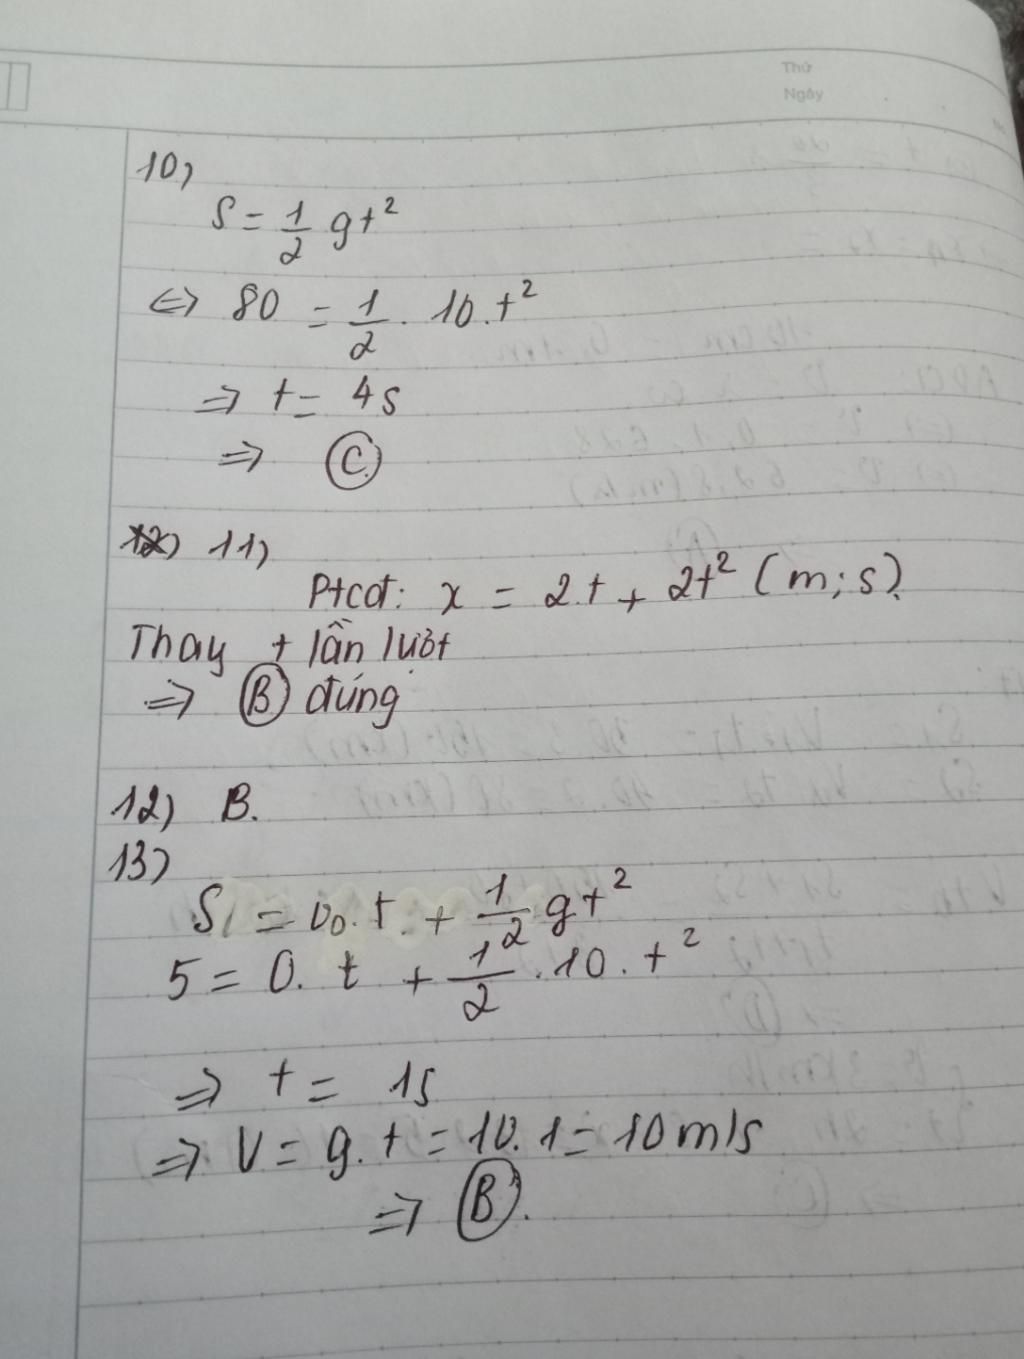 Thứ
Ngày
10)
S = 1/2 gt²
⇔ 80 = 1/2 . 10.t²
⇒ t = 4s
⇒ C.
12) 11)
Ptcđ: x = 2.t + 2t² (m; s).
Thay t lần lượt
⇒ B đúng
12) B.
13)
S = v₀.t + 1/2 gt²
5 = 0. t + 1/2 .10. t²
⇒ t = 1s
⇒ V = g. t = 10. 1 = 10 m/s
⇒ B.